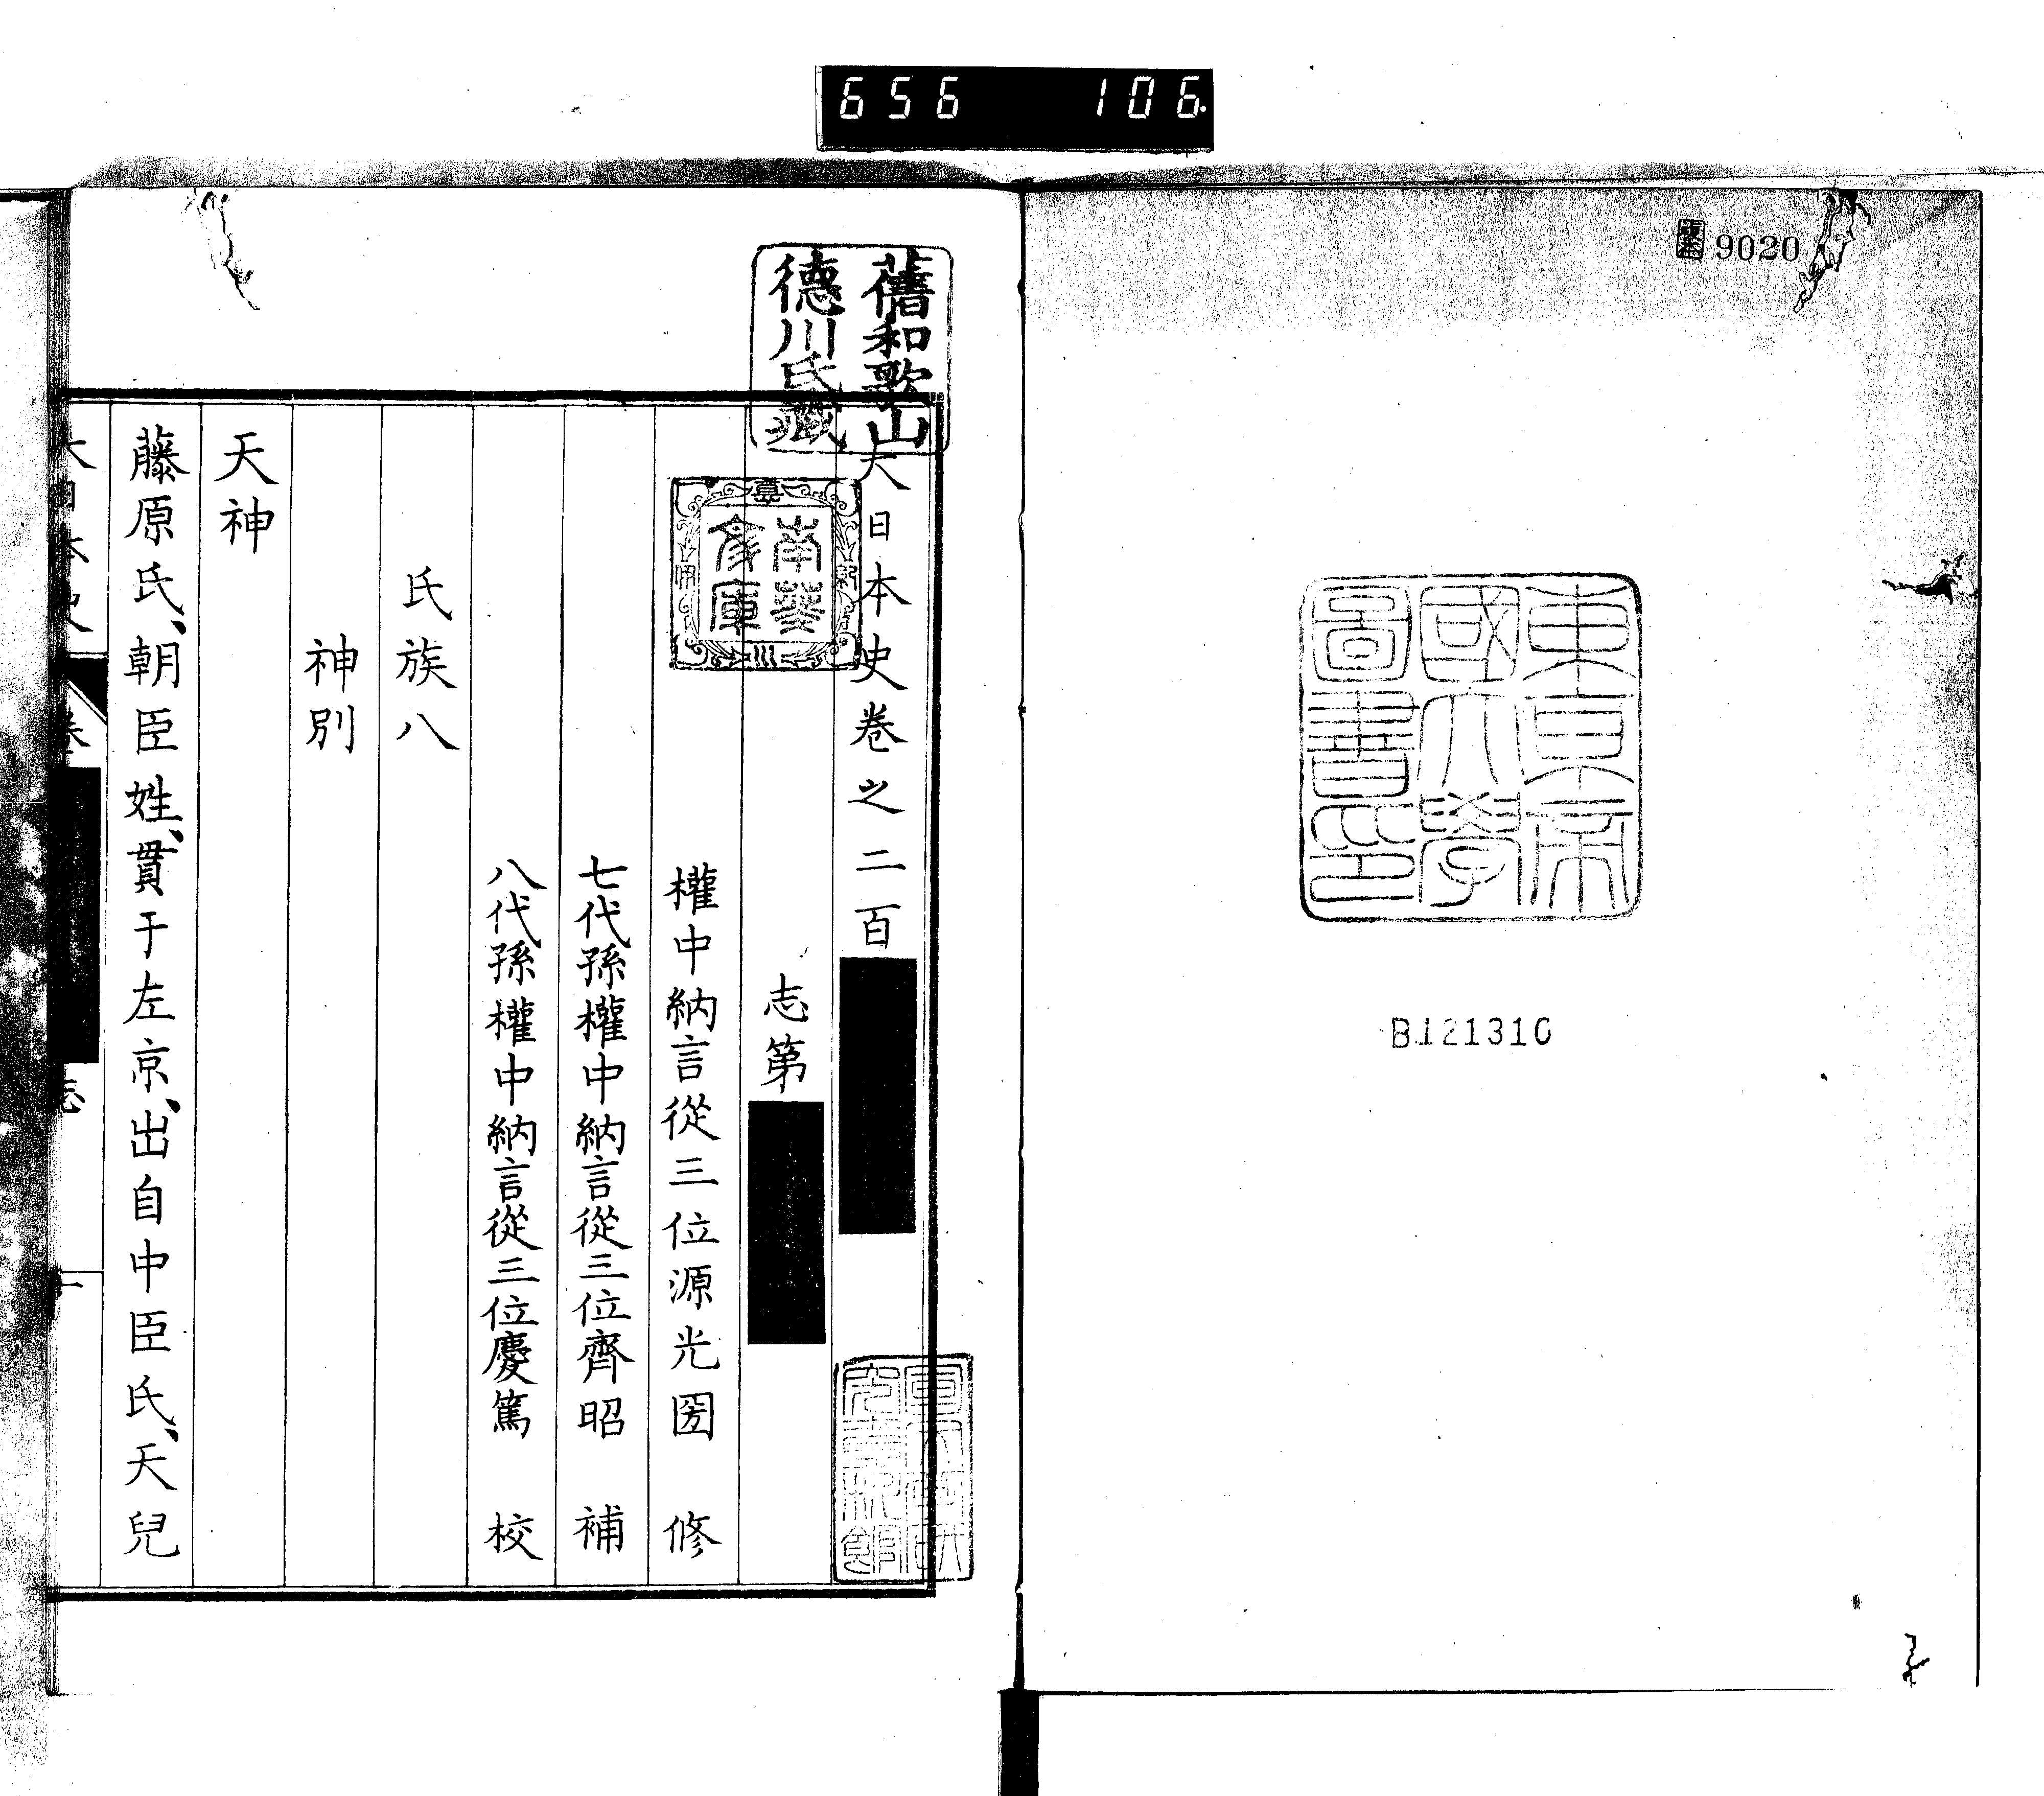 656 106
9020
東京帝
國大學
圖書印
B121310
舊和歌山
德川氏藏
南葵
文庫
大日本史卷之二百
志第
權中納言從三位源光圀 修
七代孫權中納言從三位齊昭 補
八代孫權中納言從三位慶篤 校
氏族八
神別
天神
藤原氏、朝臣姓、貫于左京、出自中臣氏、天兒
大日本史 卷 志 一